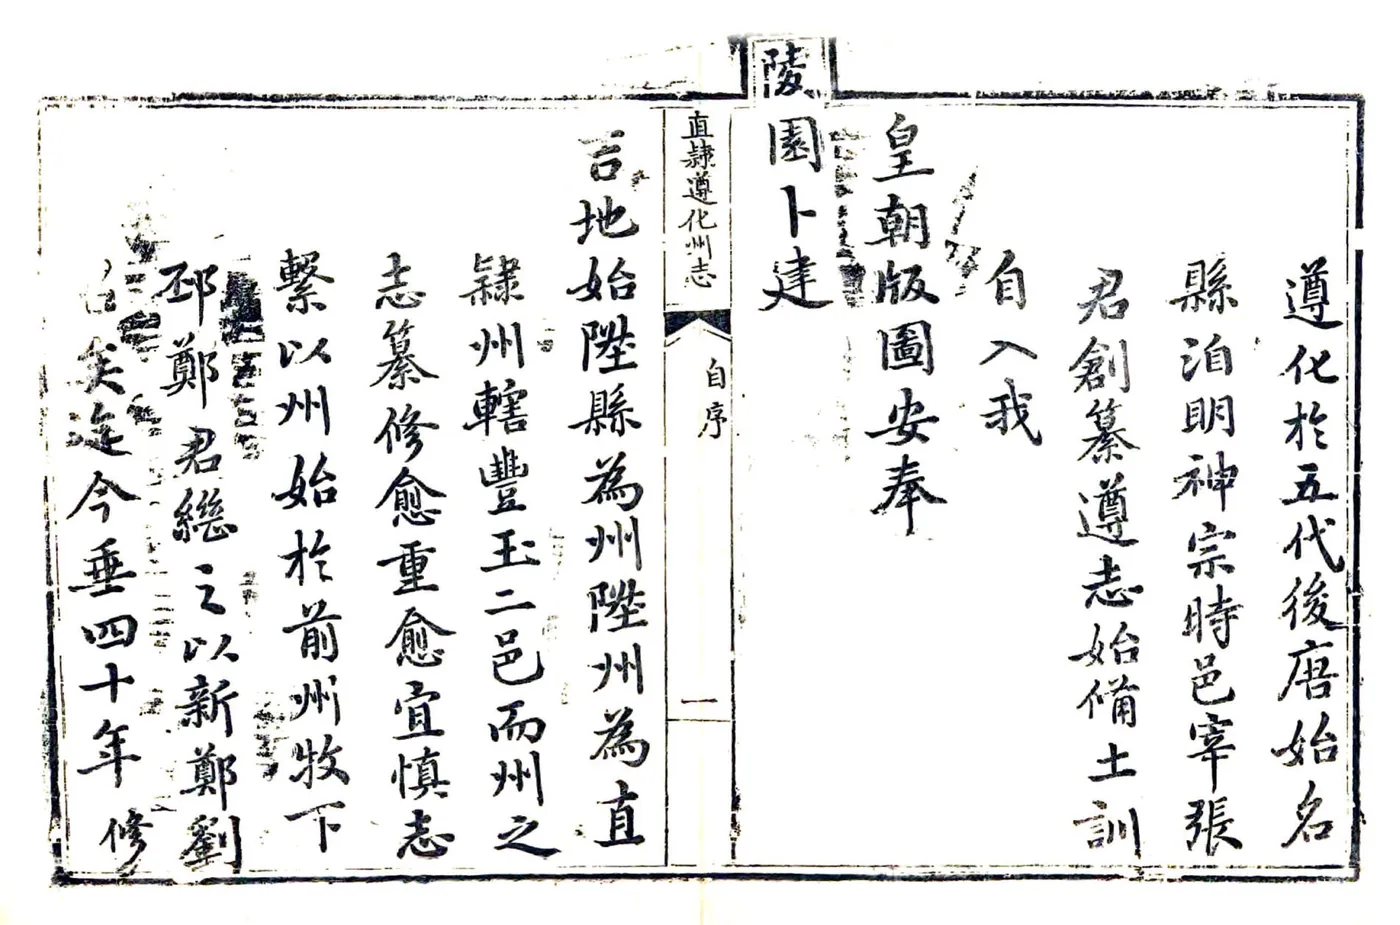 遵化於五代後唐始名
縣洎明神宗時邑宰張
君創纂遵志始備土訓
自入我
皇朝版圖安奉
陵園卜建
直隸遵化州志
自序
一
吉地始陞縣為州陞州為直
隸州轄豐玉二邑而州之
志纂修愈重愈宜慎志
繫以州始於前州牧下
邳鄭君繼之以新鄭劉
矣迄今垂四十年修